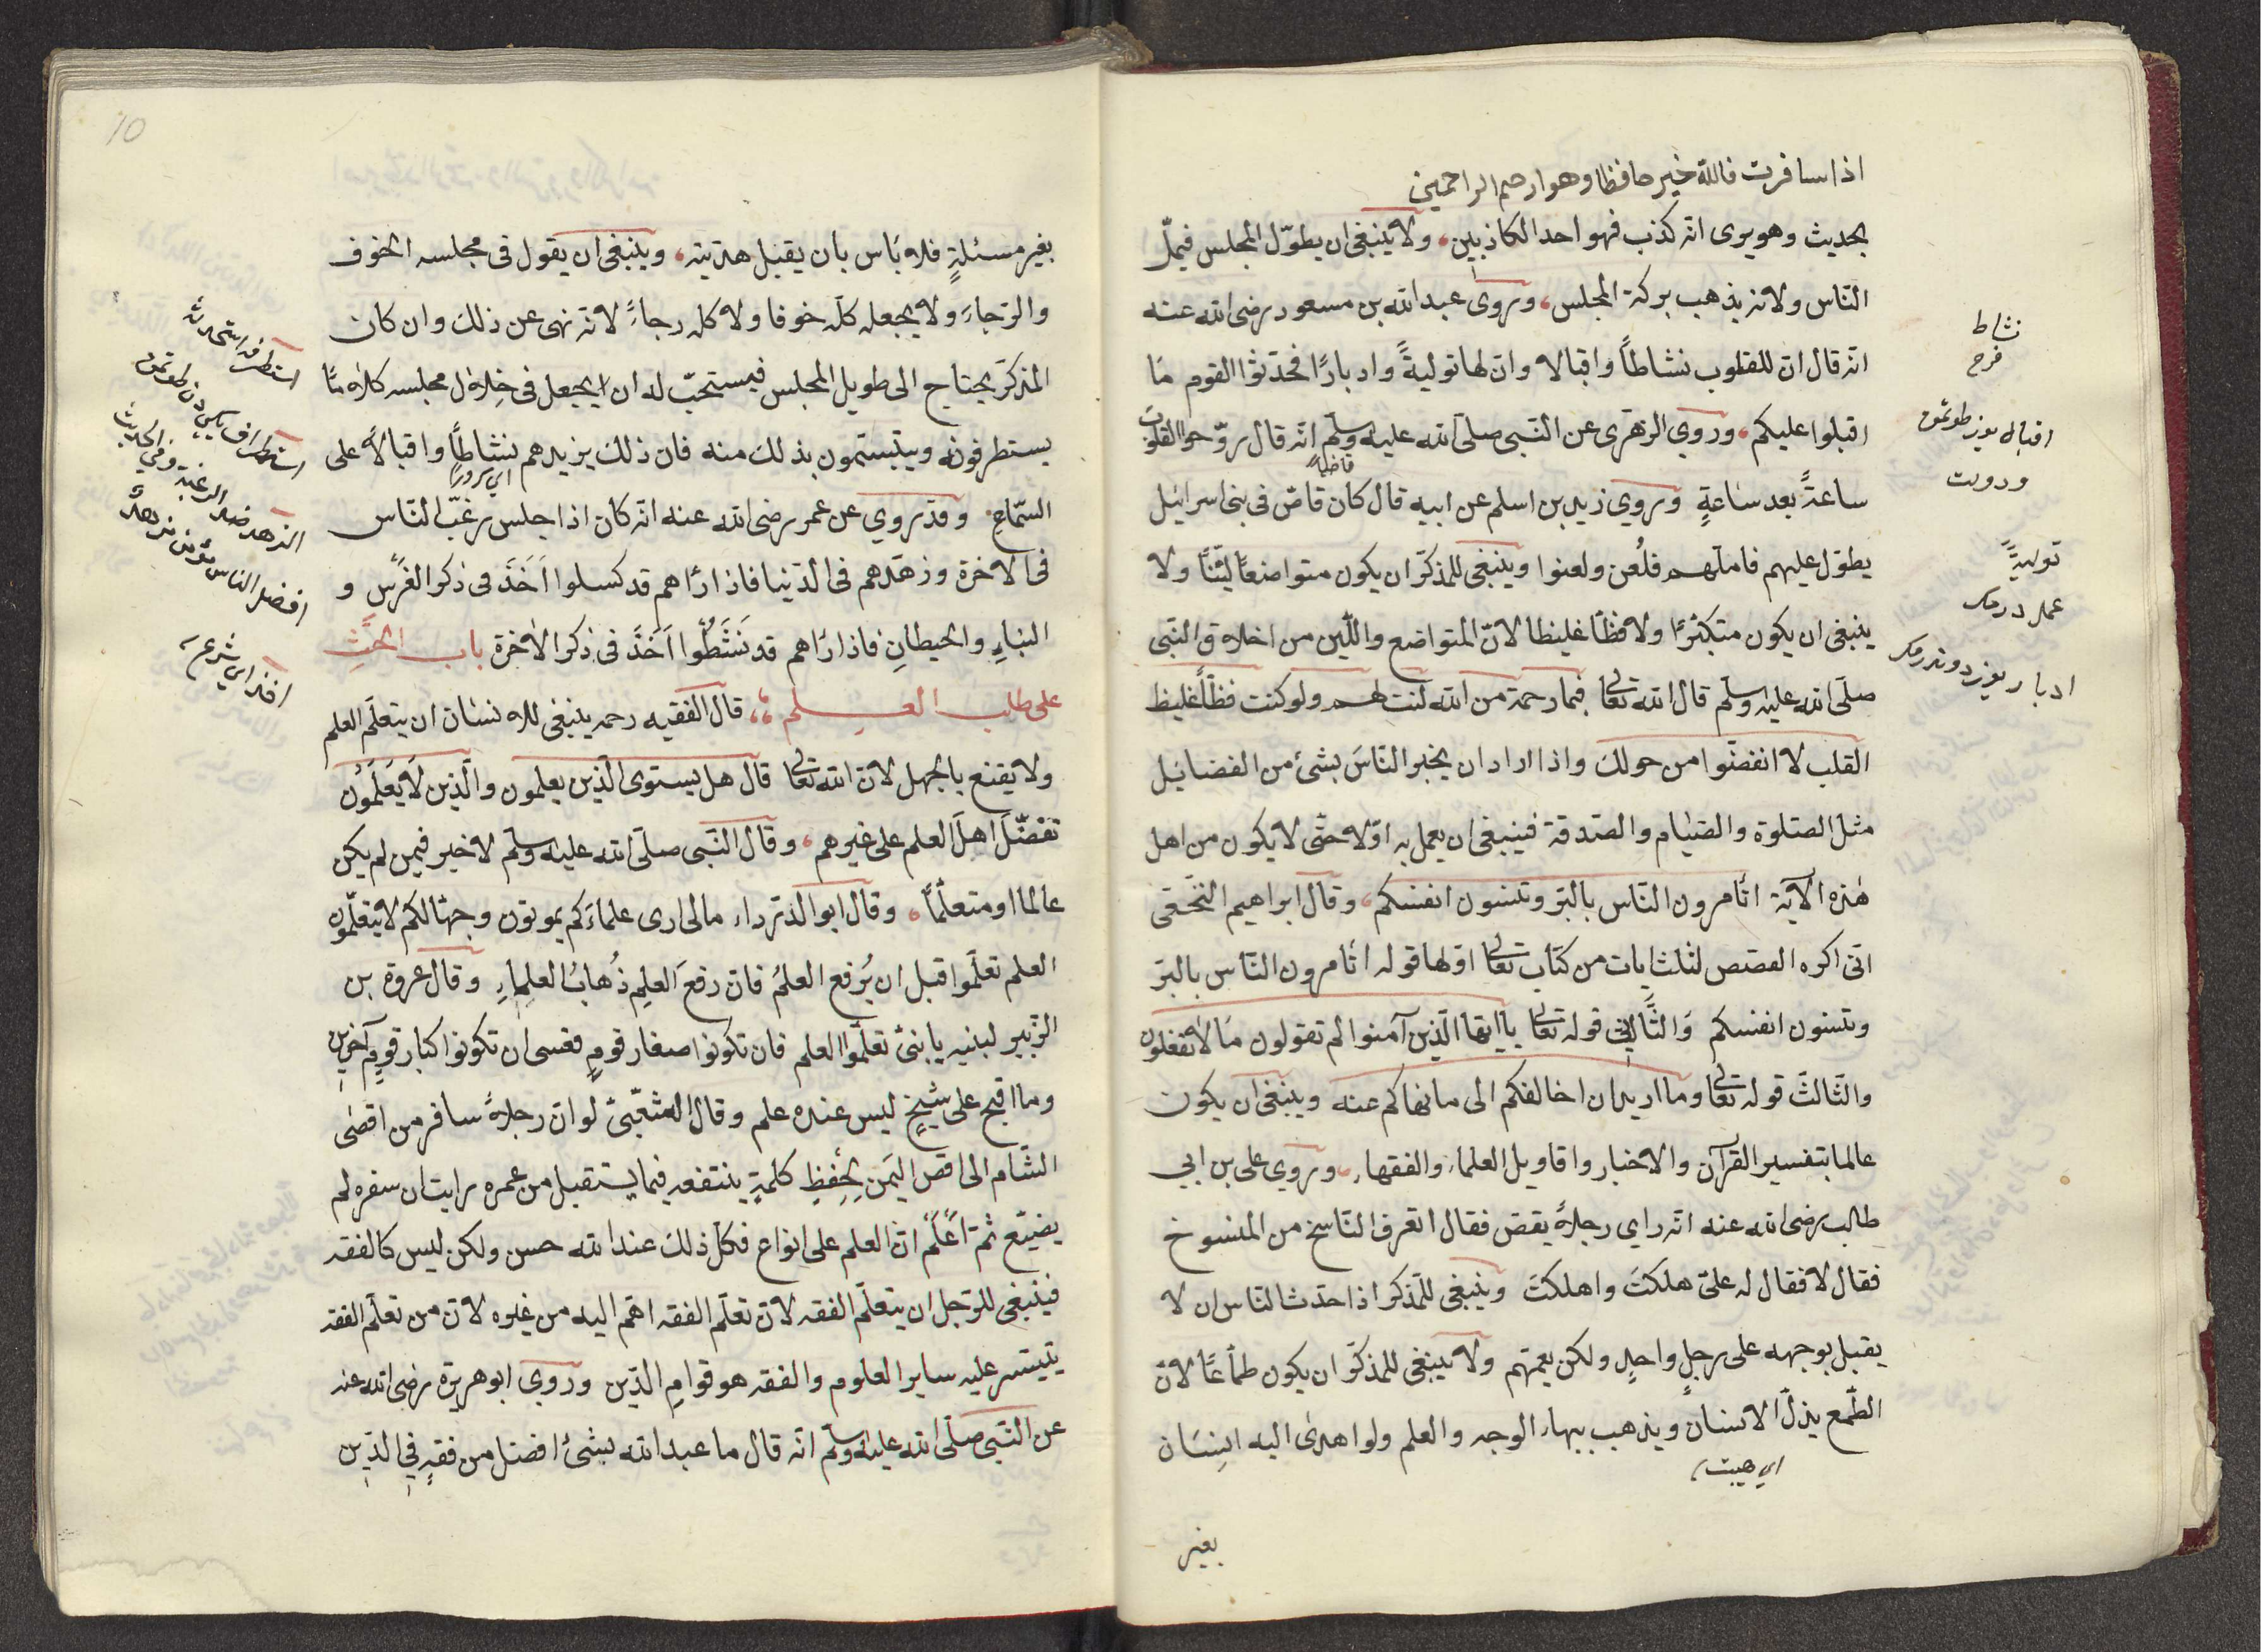 اذا سافرت فالله خير حافظا وهو ارحم الراحمين
بحديث وهو يرى انه كذب فهو احد الكاذبين، ولا ينبغى ان يطوّل المجلس فيملّ
النّاس ولانه يذهب بركة المجلس، وروى عبد الله بن مسعود رضى الله عنه
انّه قال انّ للقلوب نشاطاً واقبالا وانّ لها توليةً وادبارًا فحدّثوا القوم مَا
اقبلوا عليكم، وروي الزهرى عن النّبى صلّى الله عليه وسلّم انّه قال روّحوا القلوبَ
ساعةً بعد سَاعةٍ وروي زيد بن اسلم عن ابيه قال كان قاصّ فى بنى اسرائيل
يطوّل عليهم فاملّهم فلُعن ولعنوا وينبغى للمذكّر ان يكون متواضعًا ليّنًا ولا
ينبغى ان يكون متكبّرًا ولا فظّا غليظا لانّ المتواضع واللّين من اخلاق النّبى
صلّى الله عليه وسلّم قال الله تعالى فبما رحمة من الله لنت لهم ولو كنت فظّاً غليظ
القلب لا انفضّوا من حولك واذا اراد ان يخبر النّاسَ بشئ من الفضايل
مثل الصّلوة والصّيام والصّدقة فينبغى ان يعمل به اوّلا حتّى لا يكون من اهل
هٰذه الآية اتأمرون النّاس بالبرّ وتنسون انفسكم، وقال ابراهيم النّخعى
انّى اكره القصص لثلث ايات من كتاب تعالى اوّلها قوله اتأمرون النّاس بالبرّ
وتنسون انفسكم وَالثّانِي قوله تعالى ياايّها الّذين آمنوا لم تقولون مَا لا تفعلون
والثّالثَ قوله تعالى وما اريد ان اخالفكم الى ما نهاكم عنه وينبغى ان يكون
عالما بتفسير القرآن والاخبار واقاويل العلماء والفقهاء، وروي على بن ابي
طالب رضى الله عنه انّه راي رجلاً يقصّ فقال اتعرف النّاسخ من المنسوخ
فقال لا فقال له علىّ هلكتَ واهلكتَ وينبغى للمذكر اذا حدّث النّاس ان لا
يقبل بوجهه على رجلٍ واحدٍ ولكن يعمّهم ولا ينبغى للمذكّر ان يكون طمّاعًا لانّ
الطّمع يذلّ الانسان ويذهب ببهاء الوجه والعلم ولو اهدى اليه انسَان
اي هيبت
بغير
نشاط
فرح
اقباله يوز طوتمق
ودولت
توليةً
عمل درمك
ادبار يوز دوندرمك
قاضيا
بغير مسئلةٍ فلا بَاس بان يقبل هديّته، وينبغى ان يقول فى مجلسه الخوف
والرّجاءَ ولا يجعله كلّه خوفا ولا كله رجاءً لانّه نهى عن ذلك وان كان
المذكّر يحتاج الى طويل المجلس فيستحبّ له ان يجعل فى خِلال مجلسه كلامًا
يستطرفونه ويتبسّمون بذلك منه فان ذلك يزيدهم نشاطاً واقبالاً على
اي سرورا
السّماع، وقد روي عن عمر رضى الله عنه انّه كان اذا جلس رغّب النّاس
فى الاخرة وزهّدهم فى الدّنيا فاذا رأهم قد كسلوا اَخَذَ فى ذكر الغرس و
البناءِ والحيطانِ فاذا رَاهم قد نَشَطُوا اَخَذَ فى ذكر الاخرة باب الحَثِّ
على طلب العلم قال الفقيه رحمه ينبغى للانسان ان يتعلّم العلم
ولا يقنع بالجهل لانّ الله تعالى قال هل يستوى الّذين يعلمون والّذين لَا يَعْلَمُوْن
تفضّلَ اهلَ العلم على غيرهم، وقال النّبى صلّى الله عليه وسلّم لا خير فيمن لم يكن
عالما او متعلّماً، وقال ابو الدّرداء مالى ارى علماءَكم يموتون وجهّالكم لا يتعلّمون
العلم تعلّموا قبل ان يُرفع العلمُ فانّ رفعَ العلمِ ذُهابُ العلماءِ وقال عروة بن
الزّبير لبنيه يا بنىّ تعلّموا العلم فان تكونوا صغار قومٍ فعسى ان تكونوا كبار قومٍ آخرين
وما اقبح على شيخٍ ليس عنده علم وقال الشّعبىّ لو انّ رجلاً سافر من اقصى
الشّام الى اقص اليمَن لحِفظِ كلمةٍ ينتفعه فيما يستقبل من عمره رايت ان سفره لم
يضيّع ثمّ اعْلَمْ انّ العلم على انواع فكلّ ذلك عند الله حسن ولكن ليس كالفقه
فينبغى للرّجل ان يتعلّم الفقه لانّ تعلّم الفقه اهّم اليه من غيره لانّ من تعلّم الفقه
يتيسّر عليه ساير العلوم والفقه هو قوامِ الدّين وروي ابو هريرة رضى الله عنه
عن النّبى صلّى الله عليه وسلّم انّه قال ما عبد الله بشئ افضل من فقهٍ فِي الدّين
استطرفه استحدثه
الزهد ضد الرغبة وفي الحديث
افضل الناس مؤمن مزهد
10